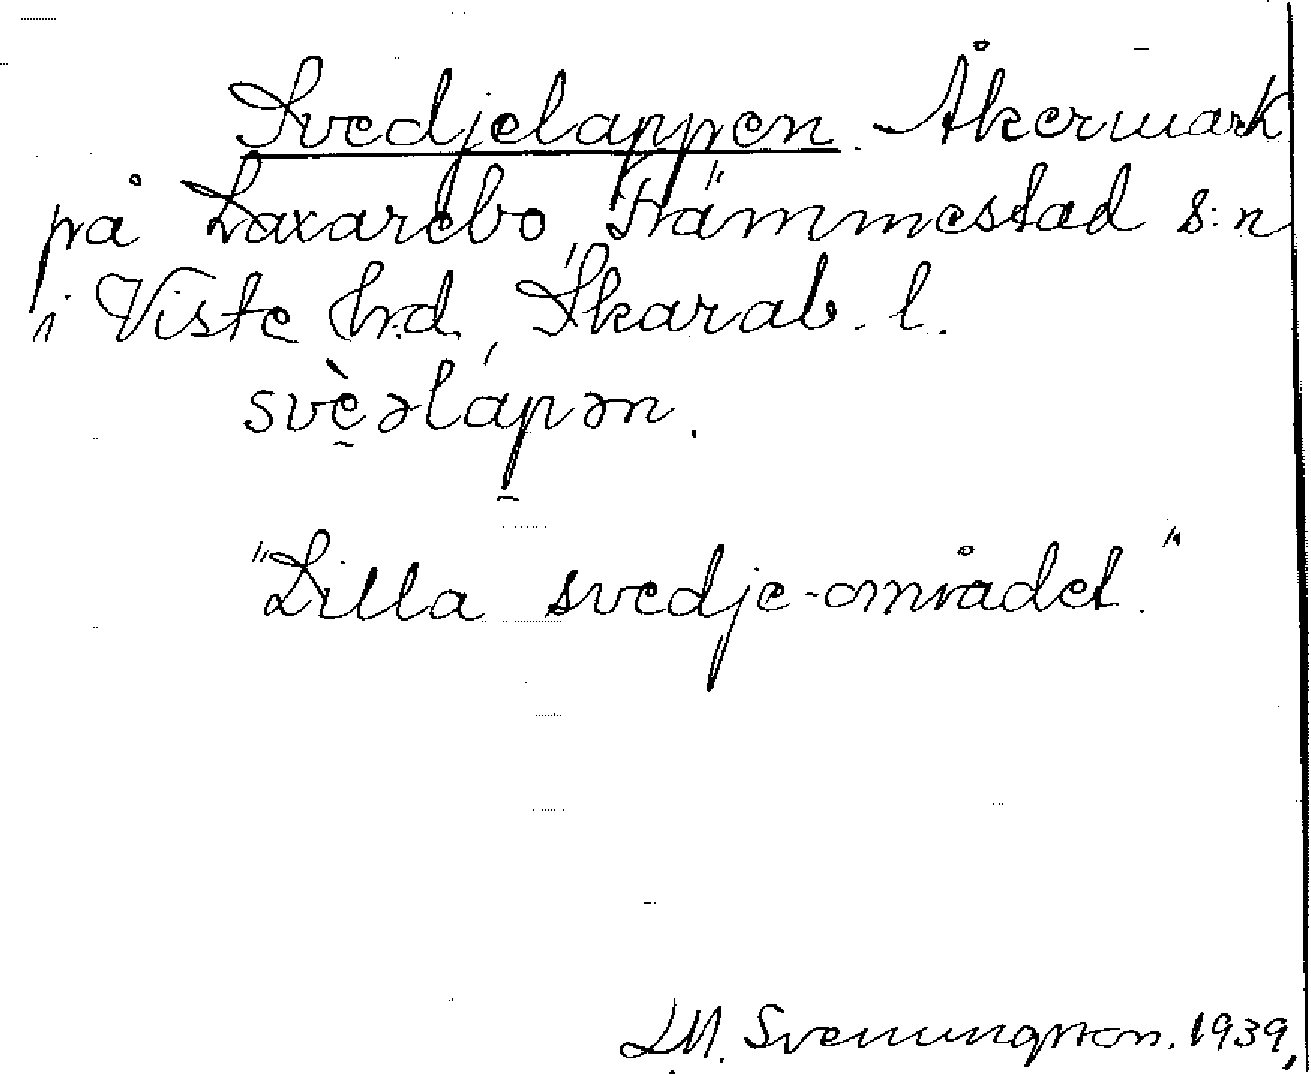 Svedjelappen. Åkermark
på Laxarebo, Främmestad s:n
i Viste hrd, Skarab. l.
svèəlápən.
"Lilla svedje-området."
L.M. Svenungsson. 1939,